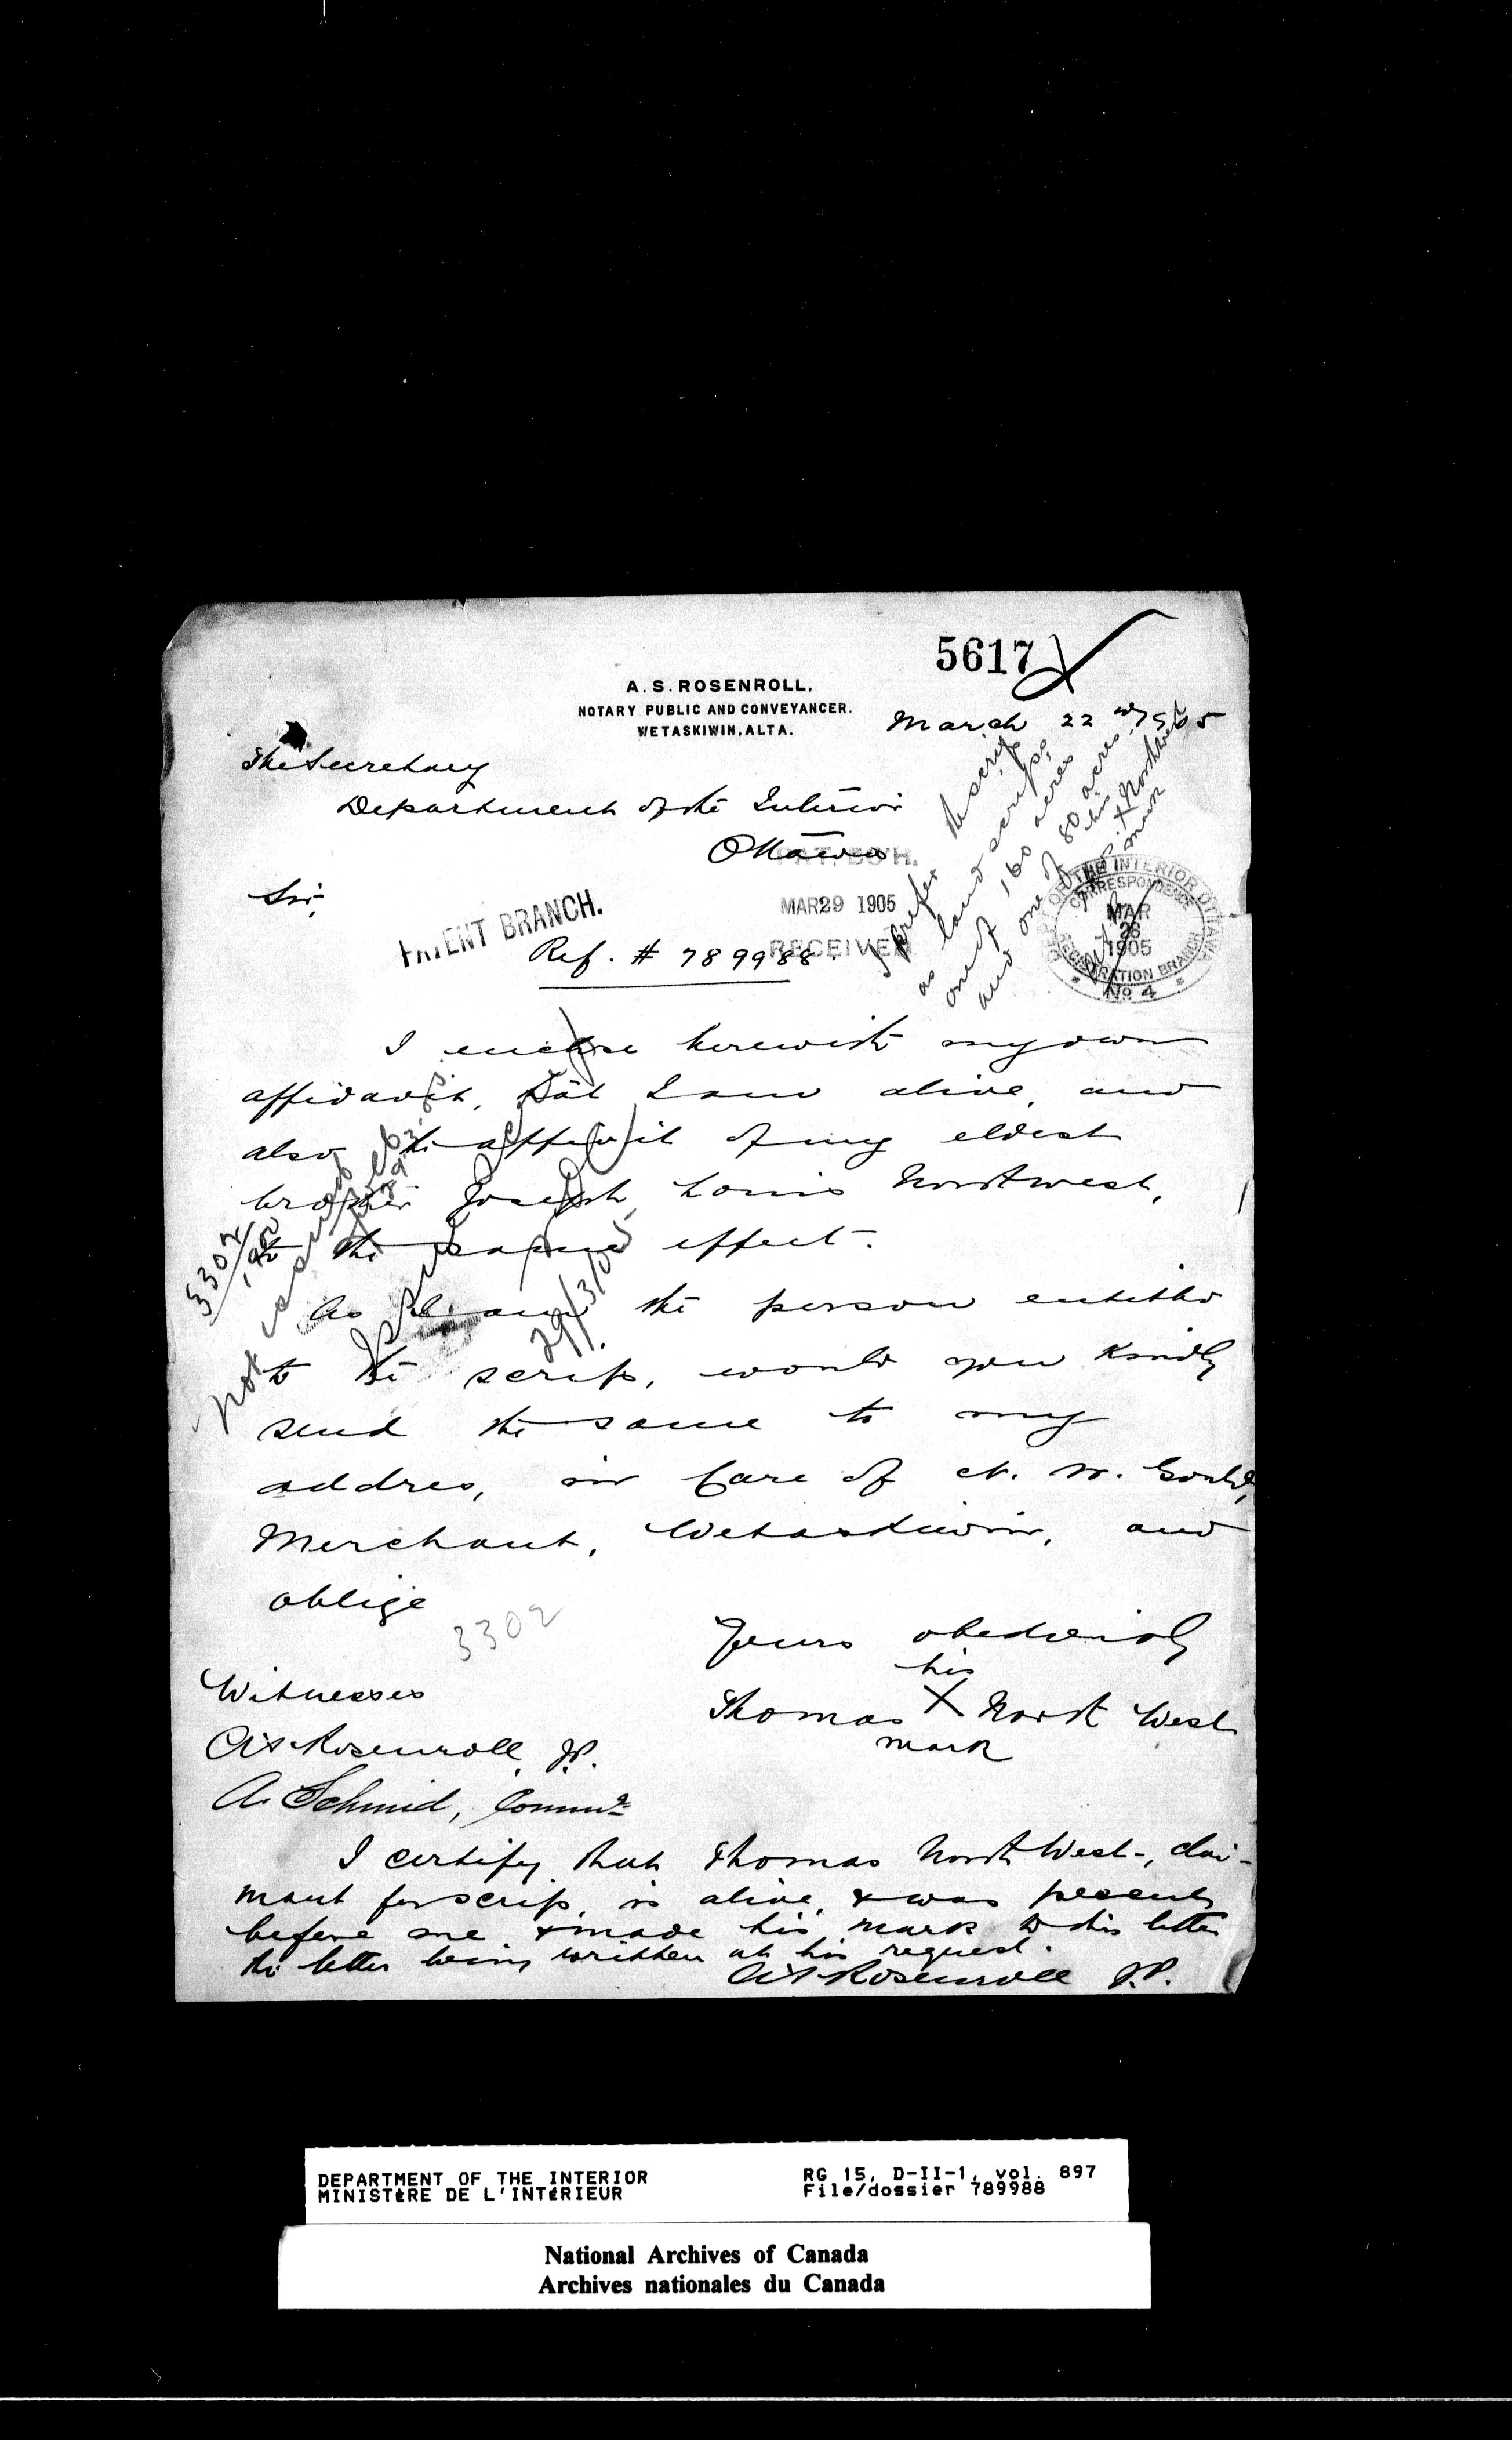 5617
A. S. ROSENROLL,
NOTARY PUBLIC AND CONVEYANCER.
WETASKIWIN, ALTA.
March 22nd 1905
The Secretary
Department of the Interior
Ottawa
Sir,
PATENT BRANCH.
MAR 29 1905
RECEIVED
Ref. # 789988.
I prefer the scrip
as land scrips,
one of 160 acres
and one of 80 acres.
his
X Northwest
mark
DEPT OF THE INTERIOR OTTAWA
CORRESPONDENCE
MAR
28
1905
REGISTRATION BRANCH
No 4
I enclose herewith my own
affidavit, that I am alive, and
also the affidavit of my eldest
brother Joseph Louis Northwest,
to the same effect.
As I am the person entitled
to the scrip, would you kindly
send the same to my
addres, in Care of
Merchant, Wetaskiwin, and
oblige
3302
Not issued
29/3/05
3302
Yours obediently
his
Thomas X North West
mark
Witnesses
A S Rosenroll, J.P.
A. Schmid,
I certify that Thomas North West, clai-
mant for scrip, is alive, & was present
before me & made his mark to this letter
the letter being written at his request.
A S Rosenroll J.P.
DEPARTMENT OF THE INTERIOR
MINISTÈRE DE L'INTÉRIEUR
RG 15, D-II-1, vol. 897
File/dossier 789988
National Archives of Canada
Archives nationales du Canada